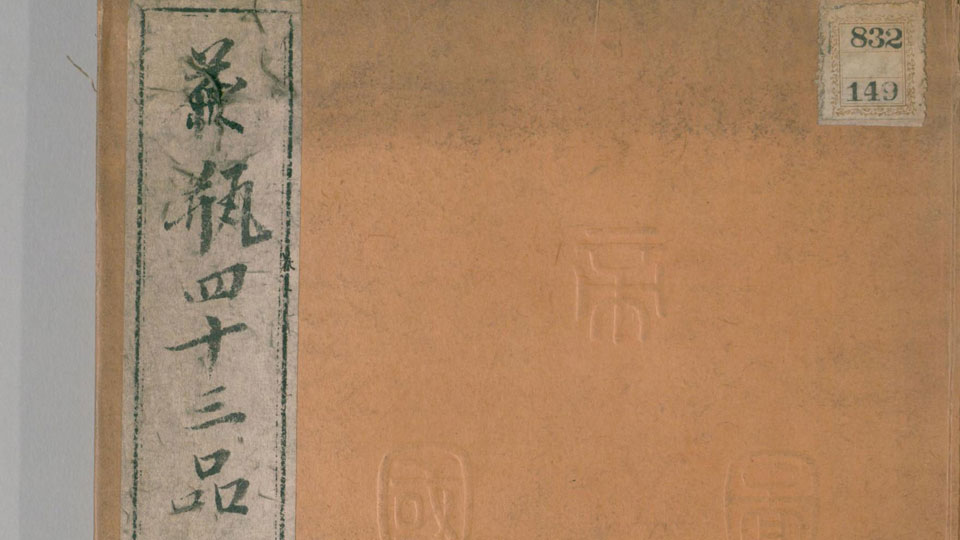 瓶四十三品
832
149
帝
國